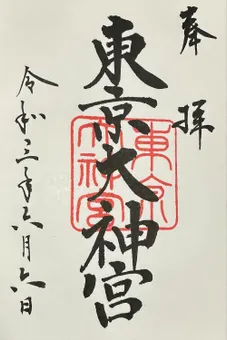 奉拝
東京大神宮
東京大神宮
令和三年六月六日